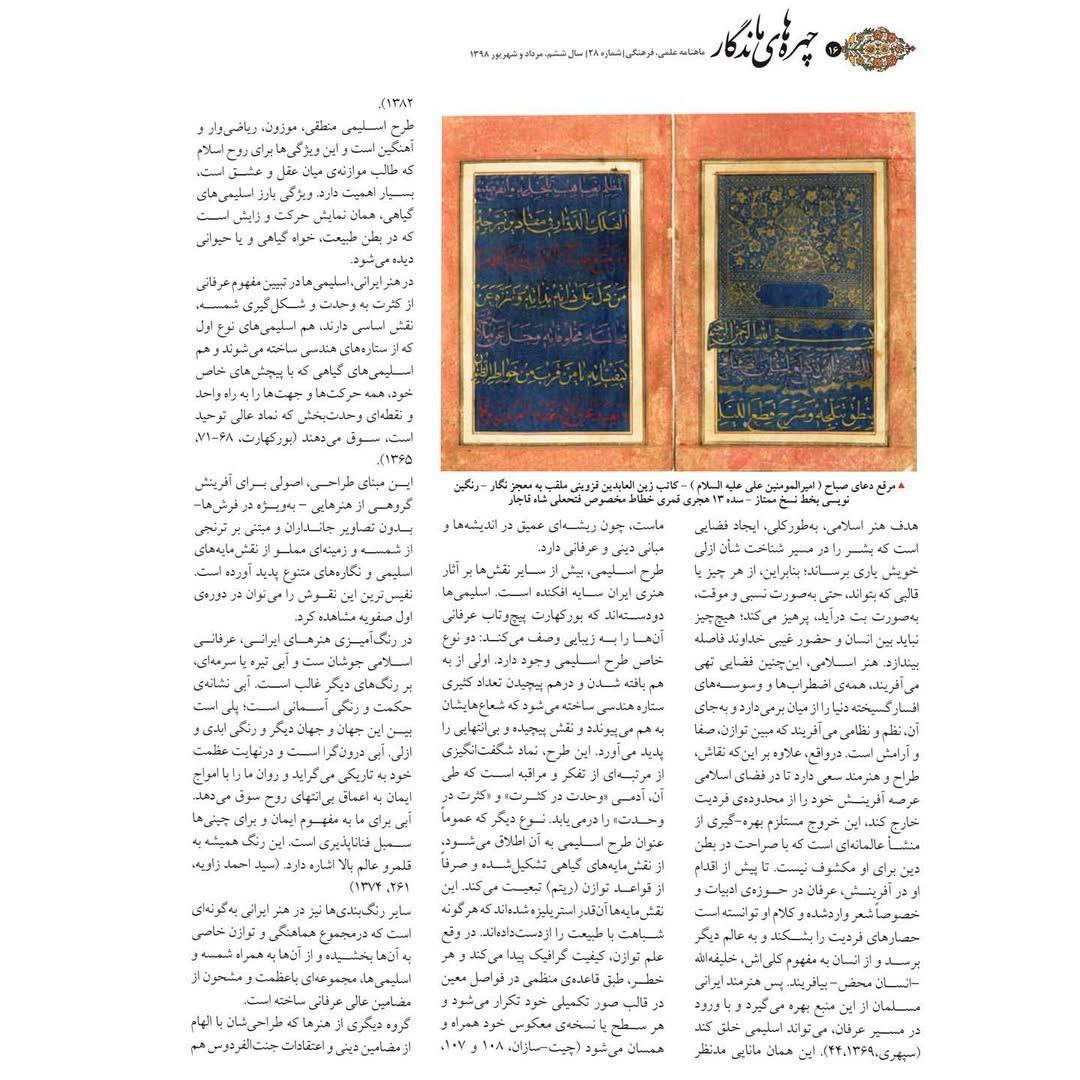 ۱۶
چهره‌های ماندگار
ماهنامه علمی، فرهنگی|شماره ۲۸| سال ششم، مرداد و شهریور ۱۳۹۸
▲ مرقع دعای صباح ( امیرالمومنین علی علیه السلام ) – کاتب زین العابدین قزوینی ملقب به معجز نگار – رنگین
نویسی بخط نسخ ممتاز – سده ۱۳ هجری قمری خطاط مخصوص فتحعلی شاه قاجار
هدف هنر اسلامی، به‌طورکلی، ایجاد فضایی
است که بشر را در مسیر شناخت شأن ازلی
خویش یاری برساند؛ بنابراین، از هر چیز یا
قالبی که بتواند، حتی به‌صورت نسبی و موقت،
به‌صورت بت درآید، پرهیز می‌کند؛ هیچ‌چیز
نباید بین انسان و حضور غیبی خداوند فاصله
بیندازد. هنر اسلامی، این‌چنین فضایی تهی
می‌آفریند، همه‌ی اضطراب‌ها و وسوسه‌های
افسارگسیخته دنیا را از میان برمی‌دارد و به‌جای
آن، نظم و نظامی می‌آفریند که مبین توازن، صفا
و آرامش است. درواقع، علاوه بر این‌که نقاش،
طراح و هنرمند سعی دارد تا در فضای اسلامی
عرصه آفرینش خود را از محدوده‌ی فردیت
خارج کند، این خروج مستلزم بهره-گیری از
منشأ عالمانه‌ای است که با صراحت در بطن
دین برای او مکشوف نیست. تا پیش از اقدام
او در آفرینش، عرفان در حوزه‌ی ادبیات و
خصوصاً شعر واردشده و کلام او توانسته است
حصارهای فردیت را بشکند و به عالم دیگر
برسد و از انسان به مفهوم کلی‌اش، خلیفه‌الله
-انسان محض- بیافریند. پس هنرمند ایرانی
مسلمان از این منبع بهره می‌گیرد و با ورود
در مسیر عرفان، می‌تواند اسلیمی خلق کند
(سپهری،۴۴،۱۳۶۹). این همان مانایی مدنظر
ماست، چون ریشه‌ای عمیق در اندیشه‌ها و
مبانی دینی و عرفانی دارد.
طرح اسلیمی، بیش از سایر نقش‌ها بر آثار
هنری ایران سایه افکنده است. اسلیمی‌ها
دودسته‌اند که بورکهارت پیچ‌وتاب عرفانی
آن‌ها را به زیبایی وصف می‌کند: دو نوع
خاص طرح اسلیمی وجود دارد. اولی از به
هم بافته شدن و درهم پیچیدن تعداد کثیری
ستاره هندسی ساخته می‌شود که شعاع‌هایشان
به هم می‌پیوندد و نقش پیچیده و بی‌انتهایی را
پدید می‌آورد. این طرح، نماد شگفت‌انگیزی
از مرتبه‌ای از تفکر و مراقبه است که طی
آن، آدمی «وحدت در کثرت» و «کثرت در
وحدت» را درمی‌یابد. نوع دیگر که عموماً
عنوان طرح اسلیمی به آن اطلاق می‌شود،
از نقش‌مایه‌های گیاهی تشکیل‌شده و صرفاً
از قواعد توازن (ریتم) تبعیت می‌کند. این
نقش‌مایه‌ها آن‌قدر استریلیزه شده‌اند که هرگونه
شباهت با طبیعت را ازدست‌داده‌اند. در وقع
علم توازن، کیفیت گرافیک پیدا می‌کند و هر
خطر، طبق قاعده‌ی منظمی در فواصل معین
در قالب صور تکمیلی خود تکرار می‌شود و
هر سطح یا نسخه‌ی معکوس خود همراه و
همسان می‌شود (چیت-سازان، ۱۰۸ و ۱۰۷،
۱۳۸۲).
طرح اسلیمی منطقی، موزون، ریاضی‌وار و
آهنگین است و این ویژگی‌ها برای روح اسلام
که طالب موازنه‌ی میان عقل و عشق است،
بسیار اهمیت دارد. ویژگی بارز اسلیمی‌های
گیاهی، همان نمایش حرکت و زایش است
که در بطن طبیعت، خواه گیاهی و یا حیوانی
دیده می‌شود.
در هنر ایرانی، اسلیمی‌ها در تبیین مفهوم عرفانی
از کثرت به وحدت و شکل‌گیری شمسه،
نقش اساسی دارند، هم اسلیمی‌های نوع اول
که از ستاره‌های هندسی ساخته می‌شوند و هم
اسلیمی‌های گیاهی که با پیچش‌های خاص
خود، همه حرکت‌ها و جهت‌ها را به راه واحد
و نقطه‌ای وحدت‌بخش که نماد عالی توحید
است، سوق می‌دهند (بورکهارت، ۶۸-۷۱،
۱۳۶۵).
این مبنای طراحی، اصولی برای آفرینش
گروهی از هنرهایی – به‌ویژه در فرش‌ها-
بدون تصاویر جانداران و مبتنی بر ترنجی
از شمسه و زمینه‌ای مملو از نقش‌مایه‌های
اسلیمی و نگاره‌های متنوع پدید آورده است.
نفیس‌ترین این نقوش را می‌توان در دوره‌ی
اول صفویه مشاهده کرد.
در رنگ‌آمیزی هنرهای ایرانی، عرفانی
اسلامی جوشان ست و آبی تیره یا سرمه‌ای،
بر رنگ‌های دیگر غالب است. آبی نشانه‌ی
حکمت و رنگی آسمانی است؛ پلی است
بین این جهان و جهان دیگر و رنگی ابدی و
ازلی. آبی درون‌گرا است و درنهایت عظمت
خود به تاریکی می‌گراید و روان ما را با امواج
ایمان به اعماق بی‌انتهای روح سوق می‌دهد.
آبی برای ما به مفهوم ایمان و برای چینی‌ها
سمبل فناناپذیری است. این رنگ همیشه به
قلمرو عالم بالا اشاره دارد. (سید احمد زاویه،
۲۶۱، ۱۳۷۴)
سایر رنگ‌بندی‌ها نیز در هنر ایرانی به‌گونه‌ای
است که درمجموع هماهنگی و توازن خاصی
به آن‌ها بخشیده و از آن‌ها به همراه شمسه و
اسلیمی‌ها، مجموعه‌ای باعظمت و مشحون از
مضامین عالی عرفانی ساخته است.
گروه دیگری از هنرها که طراحی‌شان با الهام
از مضامین دینی و اعتقادات جنت‌الفردوس هم